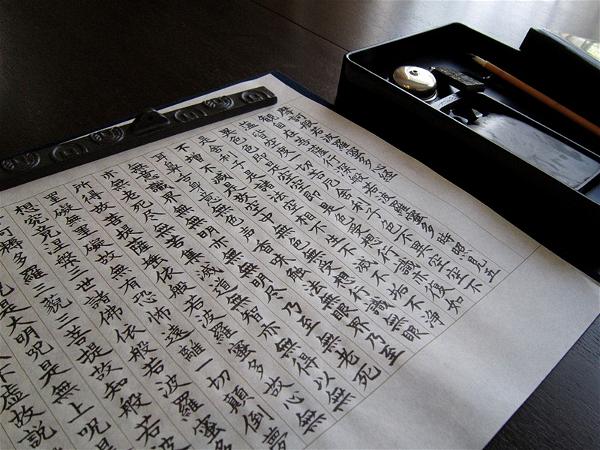 摩訶般若波羅蜜多心經
觀自在菩薩行深般若波羅蜜多時照見五
蘊皆空度一切苦厄舍利子色不異空空不
異色色即是空空即是色受想行識亦復如
是舍利子是諸法空相不生不滅不垢不淨
不增不減是故空中無色無受想行識無眼
耳鼻舌身意無色聲香味觸法無眼界乃至
無意識界無無明亦無無明盡乃至無老死
亦無老死盡無苦集滅道無智亦無得以無
所得故菩提薩埵依般若波羅蜜多故心無
罣礙無罣礙故無有恐怖遠離一切顛倒夢
想究竟涅槃三世諸佛依般若波羅蜜多
耨多羅三藐三菩提故知般若波
是大明呪是無上呪是
不虛故説